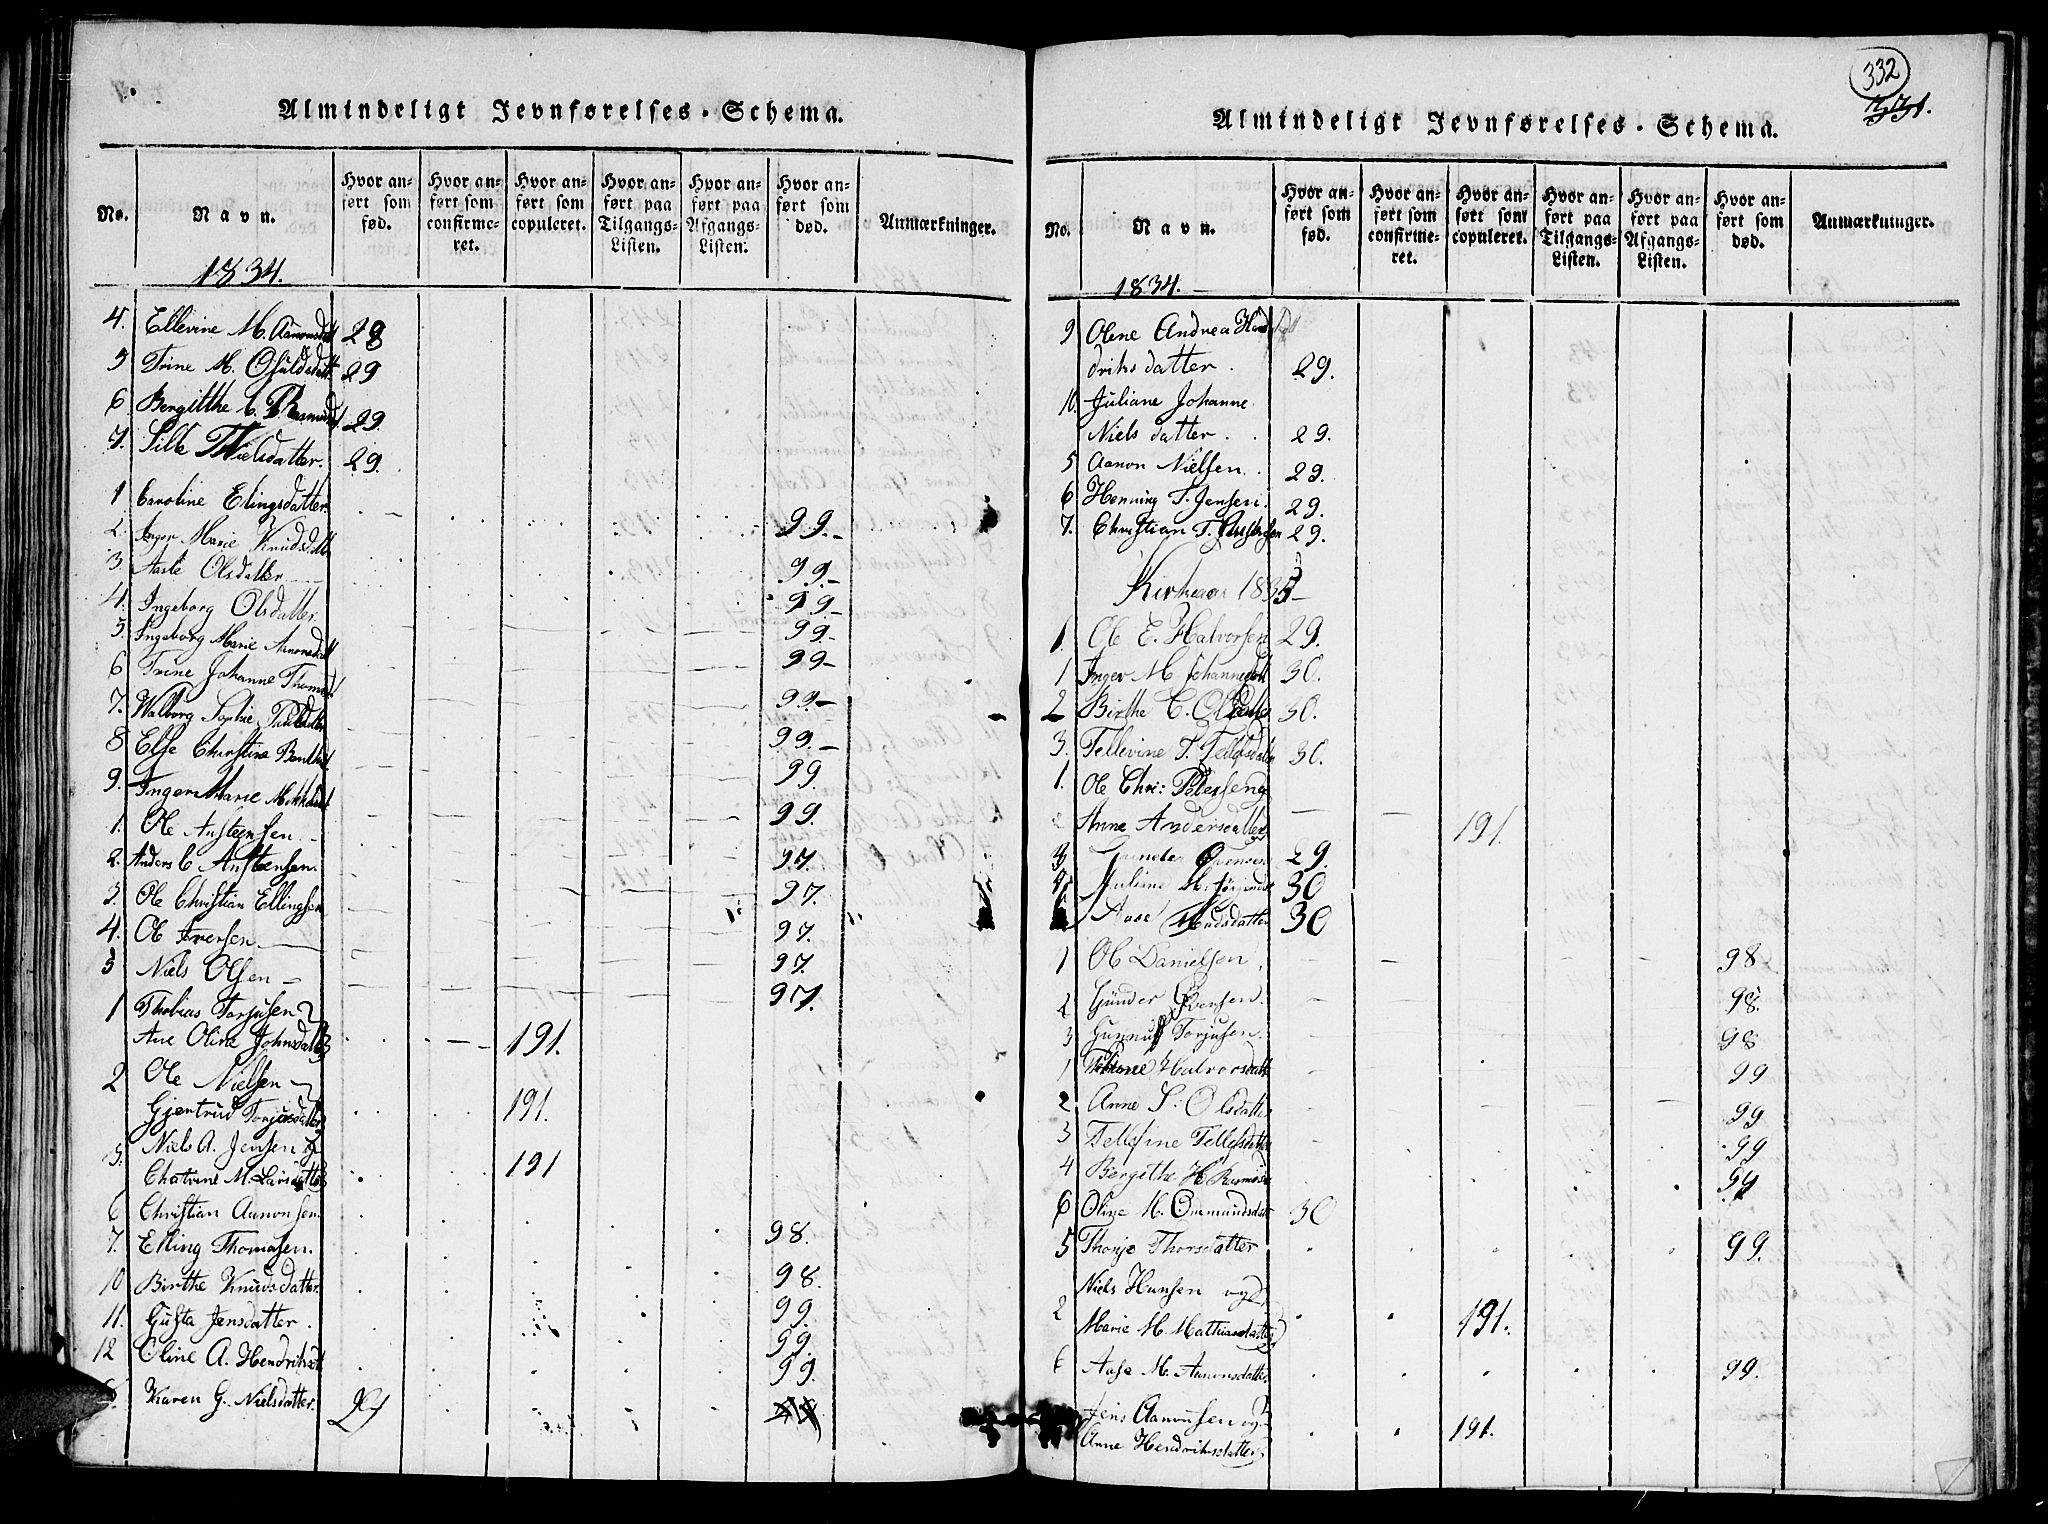 Almindeligt Jevnførelses-Schema.
No. Navn. Hvor anført som fød. Hvor anført som confirmeret. Hvor anført som copuleret. Hvor anført paa Tilgangs-Listen. Hvor anført paa Afgangs-Listen. Hvor anført som død. Anmærkninger.
1834.
4. Ellevine M. Aanonsdatt 28
5 Trine M. Osuldsdatt. 29
6 Bergitthe C. Rasmusd. 29.
7. Sille Nielsdatter. 29.
1 Caroline Elingsdatter 99.
2. Inger Marie Knudsdatter 99.
3. Aaste Olsdatter 99
4. Ingeborg Olsdatter. 99.
5. Ingeborg Marie Aanonsdatt 99
6 Trine Johanne Thomesd 99
7. Walborg Sophie 99.
8 Else Christine 99.
9. Inger Marie 99.
1. Ole Austeensen 97.
2. Anders C Austensen. 97.
3. Ole Christian Ellingsen 97.
4. Ole Iversen. 97.
5 Niels Olsen 97.
1 Thobias Torjusen
Ane Oline Johnsdatter 191.
2 Ole Nielsen
Gjertrud Torjusdatter 191.
3. Niels A. Jensen og
Chatrine M. Larsdatter 191
6 Christian Aanonsen. 98.
7. Elling Thomasen. 98.
10 Birthe Knudsdatter. 99.
11. Gusta Jensdatter. 99.
12 Oline A. Hendriksdt 99.
8. Karen G. Nielsdatter. 29
332
331.
Almindeligt Jevnførelses-Schema.
No. Navn. Hvor anført som fød. Hvor anført som confirmeret. Hvor anført som copuleret. Hvor anført paa Tilgangs-Listen. Hvor anført paa Afgangs-Listen. Hvor anført som død. Anmærkninger.
1834.
9 Olene Andrea
driksdatter. 29.
10. Juliane Johanne
Nielsdatter. 29.
5 Aanon Nielsen. 29.
6 Henning T. Jensen. 29.
7. Christian T. 29.
Kirkeaar 1835
1. Ole E. Halvorsen 29.
1 Inger M Johannesdt 30.
2 Birthe C. Olsdatter 30.
3. Tellevine T. Tellefsdatter 30.
1. Ole Chri: Pedersen og
Anne Andersdatter 191.
Gunder Evensen 29.
Juliane M. 30
Aase Madsdatter 30
1 Ole Danielsen 98
2 Günder Evensen. 98.
3 Gunnuf Torjusen. 98
1 Halvorsdatt 99
2 Anne S. Olsdatter 99
3 Tellefine Tellefsdatter 99
4 Bergithe H. 99
6 Oline M. Ommundsdatt 30
5 Thonje Thorsdatter 99.
Niels Hansen og
2 Marie M. Mathiasdatter 191.
6 Aase M. Aanonsdatter 99.
Jens Aanonsen og
Anne Hendriksdatter 191.